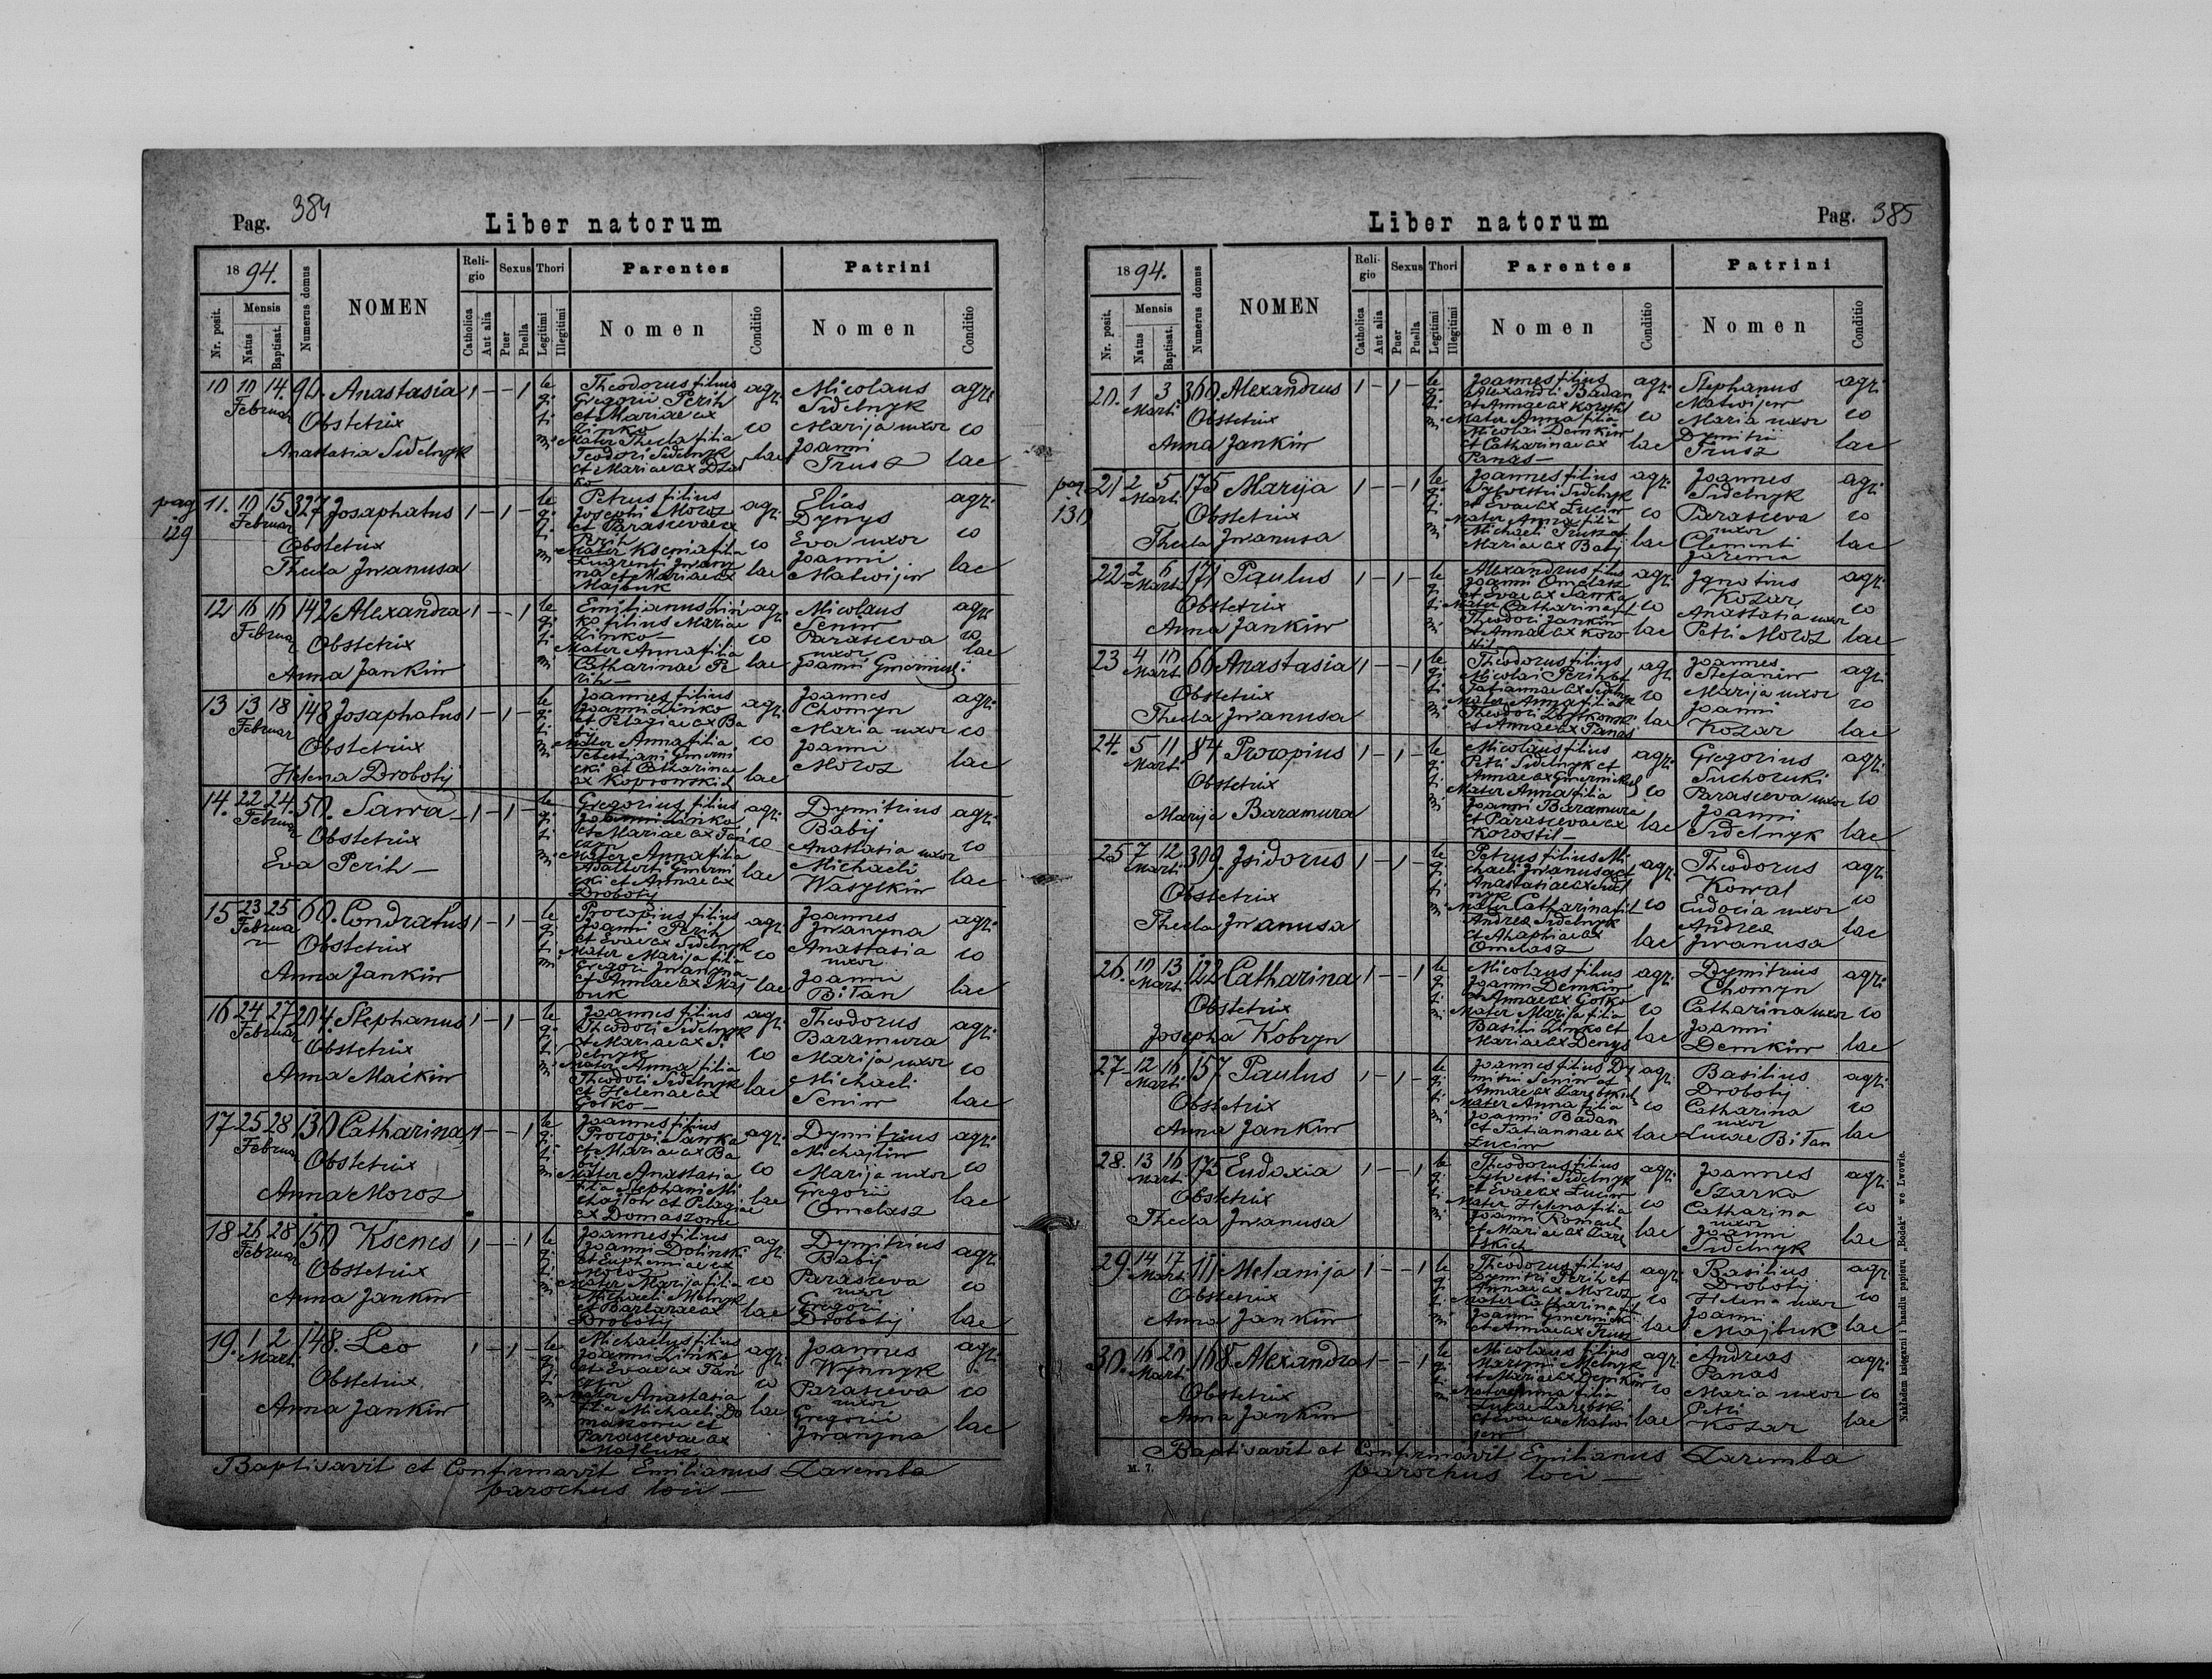 Pag. 384
Liber natorum
1894.
Nr. posit.
Mensis
Natus
Baptisat.
Numerus domus
NOMEN
Religio
Catholica
Aut alia
Sexus
Puer
Puella
Thori
Legitimi
Illegitimi
Parentes
Nomen
Conditio
Patrini
Nomen
Conditio
10 10 14. 90. Anastasia 1 — — 1
Februar
Obstetrix
Anastasia Sidelnyk
legitimi
Theodorus filius
Gregorii Perih
et Mariae ex
Zinko
Mater Thecla filia
Teodori Sidelnyk
agricolae
Micolaus
Sidelnyk
Marija uxor
Joanni
Trusz
agricolae
pag 129
11. 10 15 327 Josaphatus 1 — 1 —
Februar
Obstetrix
Thecla Jwanusa
legitimi
Petrus filius
Josephi Moroz
et Parascevae ex
Perih
Mater Ksenia filia
Majbuk
agricolae
Elias
Dynys
Eva uxor
Joanni
Matwijew
agricolae
12 16 16 142 Alexandra 1 — — 1
Februar
Obstetrix
Anna Jankiw
legitimi
Emilianus Zin
ko filius Mariae
Zinko —
Mater Anna filia
Catharinae Pe
rih —
agricolae
Micolaus
Seniw
Parasceva
uxor
Joanni
agricolae
13 13 18 148 Josaphatus 1 — 1 —
Februar
Obstetrix
Helena Drobotij
legitimi
Joannes filius
Joanni Zinko
et Pelagiae ex Ba
bij
Mater Anna filia
agricolae
Joannes
Chomyn
Maria uxor
Joanni
Moroz
agricolae
14. 22 24. 50. Sawa — 1 — 1 —
Februar
Obstetrix
Eva Perih —
legitimi
Gregorius filius
Joanni Zinko
et Mariae ex
Mater Anna filia
et Annae ex
Drobotij
agricolae
Dymitrius
Babij
Anastasia uxor
Michaeli
Wasylkiw
agricolae
15 23 25 60. Condratus 1 — 1 —
Februar
Obstetrix
Anna Jankiw
legitimi
Procopius filius
Joanni Perih
et Evae ex Sidelnyk
Mater Marija filia
Gregori Jwanyna
et Annae ex Maj
buk
agricolae
Joannes
Jwanyna
Anastasia
uxor
Joanni
Bilan
agricolae
16 24 27 204 Stephanus 1 — 1 —
Februar
Obstetrix
Anna Mackiw
legitimi
Joannes filius
Theodori Sidelnyk
et Mariae ex Si
delnyk
Mater Anna filia
Theodori Sidelnyk
et Helenae ex
Golko —
agricolae
Theodorus
Baramura
Marija uxor
Michaeli
Seniw
agricolae
17 25 28 130 Catharina 1 — — 1
Februar
Obstetrix
Anna Moroz
legitimi
Joannes filius
Procopi Sawka
et Mariae ex Ba
bij
Mater Anastasia
filia Stephani Mi
chajliw et Pelagiae
agricolae
Dymitrius
Michajliw
Marija uxor
Gregorii
Omelasz
agricolae
18 26 28 150 Ksenes 1 — — 1
Februar
Obstetrix
Anna Jankiw
legitimi
Joannes filius
Joanni Dolinski
et Euphemiae ex
Moroz
Mater Marija filia
Michaeli Melnyk
et Barbarae ex
Drobotij
agricolae
Dymitrius
Babij
Parasceva
uxor
Gregorii
Drobotij
agricolae
19. 1 2 148. Leo 1 — 1 —
Marti
Obstetrix
Anna Jankiw
legitimi
filius
Joanni Zinko
et Evae ex
Mater Anastasia
filia Michaeli
et
Parascevae ex
Majbuk
agricolae
Joannes
Wynnyk
Parasceva
uxor
Gregorii
Jwanyna
agricolae
Baptisavit et Confirmavit Emilianus Zaremba
parochus loci —
Liber natorum
Pag. 385
1894.
Nr. posit.
Mensis
Natus
Baptisat.
Numerus domus
NOMEN
Religio
Catholica
Aut alia
Sexus
Puer
Puella
Thori
Legitimi
Illegitimi
Parentes
Nomen
Conditio
Patrini
Nomen
Conditio
20. 1 3 360 Alexandrus 1 — 1 —
Marti
Obstetrix
Anna Jankiw
legitimi
Joannes filius
Alexandri Badan
Mater Anna filia
Nicolai Demkiw
et Catharinae ex
Panas —
agricolae
Stephanus
Matwijew
Maria uxor
Dymitrii
Trusz
agricolae
pag 130
21 2 5 175 Marija 1 — — 1
Marti
Obstetrix
Thecla Jwanusa
legitimi
Joannes filius
Sylvestri Sidelnyk
et Evae ex Luciw
Mater Anna filia
Mariae ex Babij
agricolae
Joannes
Sidelnyk
Parasceva
uxor
Clementi
Jaremia
agricolae
22 2 6 171 Paulus 1 — 1 —
Marti
Obstetrix
Anna Jankiw
legitimi
Alexandrus filius
Joanni Omelasz
et Evae ex Sawka
Mater Catharina
Theodori Jankiw
agricolae
Jgnatius
Kozar
Anastasia uxor
Petri Moroz
agricolae
23 4 10 66 Anastasia 1 — — 1
Marti
Obstetrix
Thecla Jwanusa
legitimi
Theodorus filius
Micolai Perih et
Tatiannae ex Sidelnyk
Mater Anna filia
et Annae ex Panas
agricolae
Joannes
Stefaniw
Marija uxor
Joanni
Kozar
agricolae
24. 5 11 84 Procopius 1 — 1 —
Marti
Obstetrix
Marija Baramura
legitimi
Micolaus filius
Petri Sidelnyk et
Mater Anna filia
Joanni Baramura
et Parascevae ex
Korostil —
agricolae
Gregorius
Suchoruki
Parasceva uxor
Joanni
Sidelnyk
agricolae
25 7 12 309. Jsidorus 1 — 1 —
Marti
Obstetrix
Thecla Jwanusa
legitimi
Petrus filius Mi
chaeli Jwanusa et
Anastasiae ex Sidel
nyk
Mater Catharina
Andrea Sidelnyk
et Ahaphiae ex
Omelasz
agricolae
Theodorus
Kowal
Eudocia uxor
Andrea
Jwanusa
agricolae
26. 10 13 122 Catharina 1 — — 1
Marti
Obstetrix
Josepha Kobryn
legitimi
Micolaus filius
Joanni Demkiw
et Annae ex Golko
Mater Marija filia
Basilii Zinko et
Mariae ex Denys
agricolae
Dymitrius
Chomyn
Catharina uxor
Joanni
Demkiw
agricolae
27 12 16 157 Paulus 1 — 1 —
Marti
Obstetrix
Anna Jankiw
legitimi
Joannes filius Dy
mitri Seniw et
Mater Anna filia
Joanni Badan
et Tatiannae ex
Luciw
agricolae
Basilius
Drobotij
Catharina
uxor
Lucae Bilan
agricolae
28. 13 16 175 Eudoxia 1 — — 1
Marti
Obstetrix
Thecla Jwanusa
legitimi
Theodorus filius
Sylvestri Sidelnyk
et Evae ex Luciw
Mater Helena filia
agricolae
Joannes
Szarko
Catharina
uxor
Joanni
Sidelnyk
agricolae
29. 14 17 111 Melanija 1 — — 1
Marti
Obstetrix
Anna Jankiw
legitimi
Theodorus filius
Dymitri Perih et
Annae ex Moroz
Mater Catharina
et Annae ex Trusz
agricolae
Basilius
Drobotij
Helena uxor
Joanni
Majbuk
agricolae
30. 16 20 168 Alexandra 1 — — 1
Marti
Obstetrix
Anna Jankiw
legitimi
Nicolaus filius
Martyni Melnyk
et Mariae ex Demkiw
Mater Anna filia
Lucae Zarebski
et Evae ex Matwi
jew
agricolae
Andreas
Panas
Maria uxor
Petri
Kozar
agricolae
Baptisavit et Confirmavit Emilianus Zaremba
parochus loci —
M. 7.
Nakładem księgarni i handlu papieru „Bodek" we Lwowie.